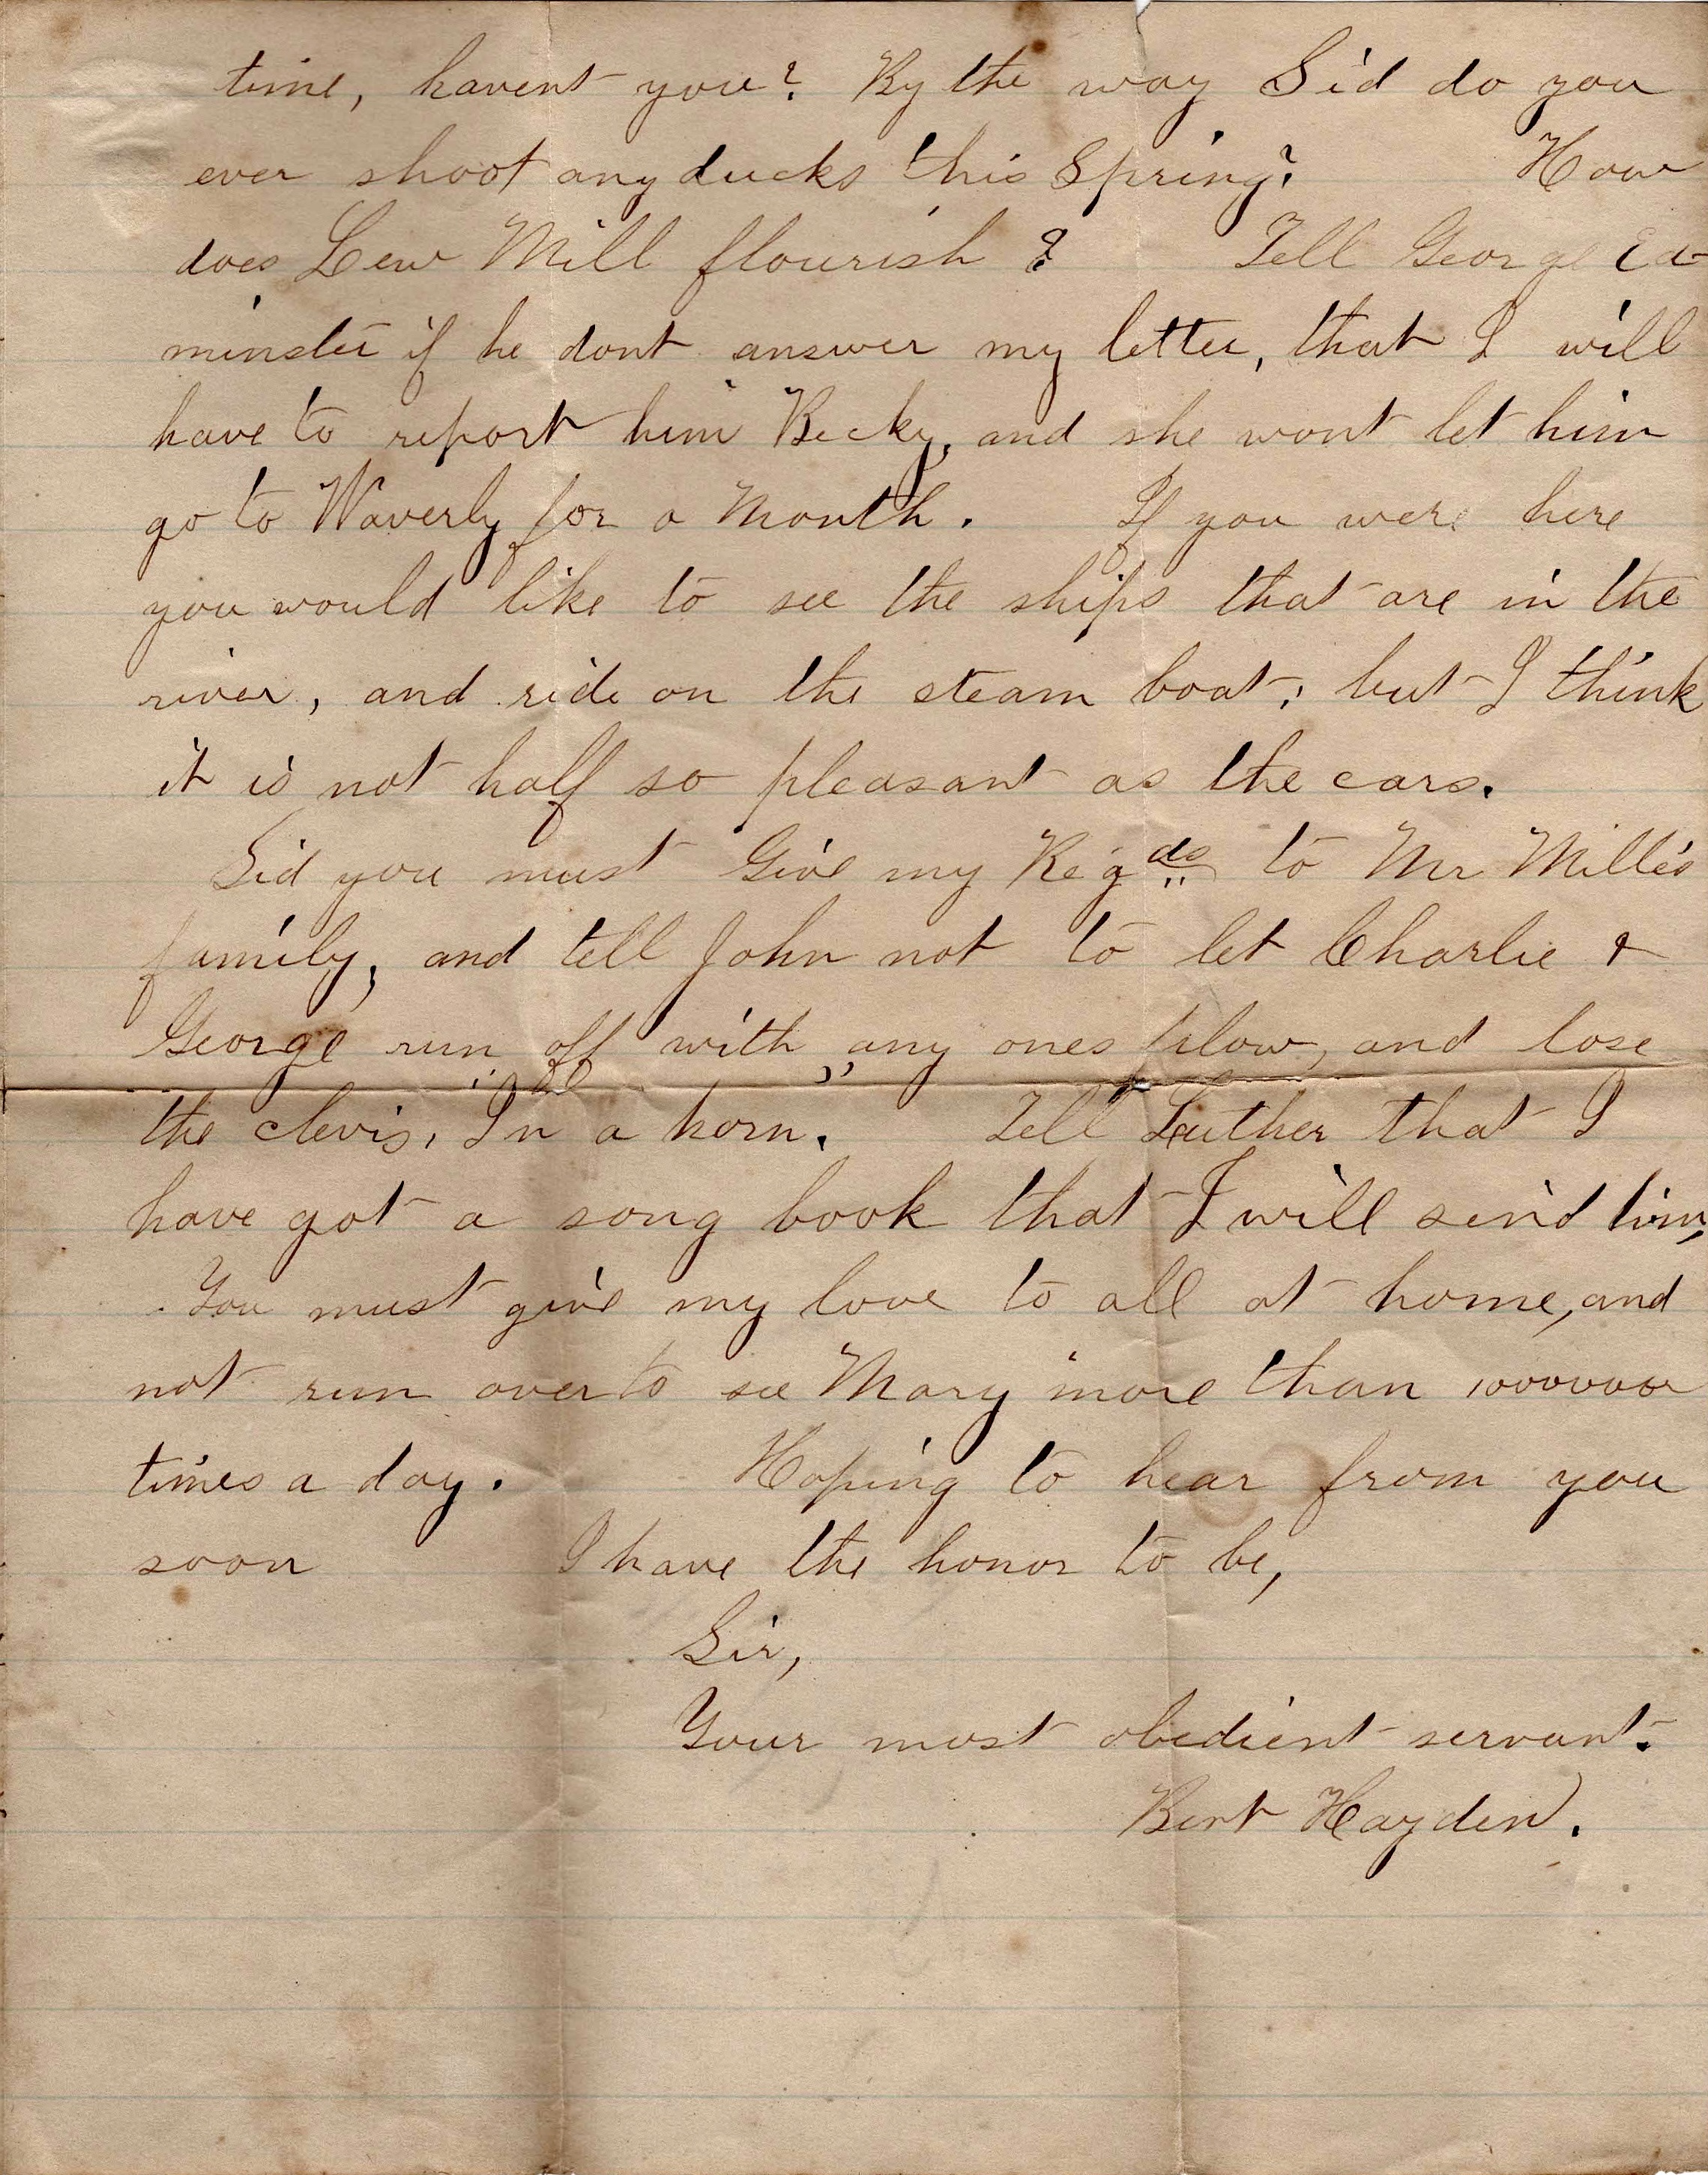 time, havent you? By the way Sid do you
ever shoot any ducks this Spring? How
does Lew Mill flourish? Tell George Ed-
minster if he dont answer my letter, that I will
have to report him Becky, and she wont let him
go to Waverly for a Month. If you were here
you would like to see the ships that are in the
river, and ride on the steam boat, but I think
it is not half so pleasant as the cars.
Sid you must Give my Regds to Mr Mills
family, and tell John not to let Charlie &
George run off with any ones plow, and lose
the clevis, In a horn. Tell Luther that I
have got a song book that I will send him,
You must give my love to all at home, and
not run over to see Mary more than 10000000
times a day. Hoping to hear from you
soon I have the honor to be,
Sir,
Your most obedient servant.
Bert Hayden.